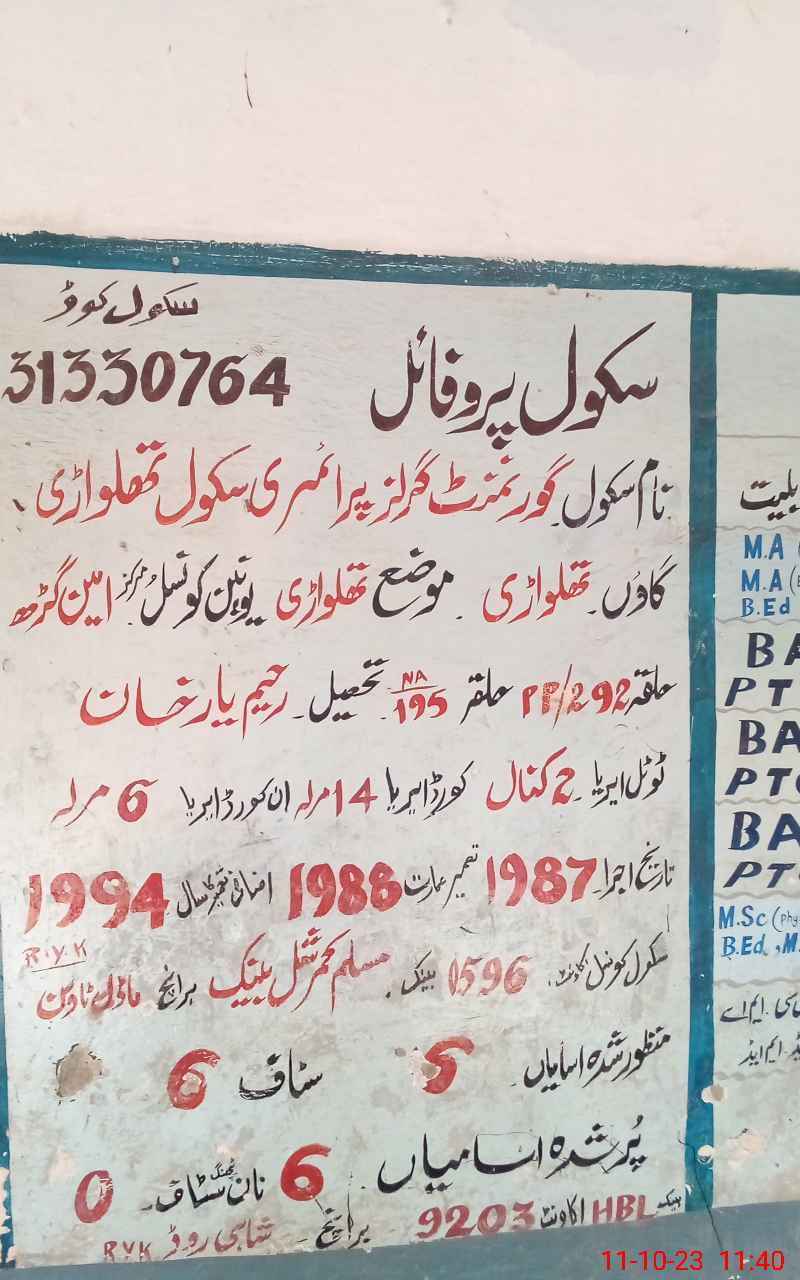 سکول کوڈ
31330764
سکول پروفائل
نام سکول گورنمنٹ گرلز پرائمری سکول تھلواڑی
گاؤں تھلواڑی موضع تھلواڑی یونین کونسل مرکز امین گڑھ
حلقہ PP/292 حلقہ NA 195 تحصیل رحیم یار خان
ٹوٹل ایریا 2 کنال کورڈ ایریا 14 مرلہ ان کورڈ ایریا 6 مرلہ
تاریخ اجرا 1987 تعمیر عمارت 1988 اضافی تعمیر سال 1994
سکول کونسل اکاؤنٹ 0596 بینک مسلم کمرشل بینک برانچ ماڈل ٹاون R.Y.K
منظور شدہ اسامیاں سٹاف 6
پُر شدہ اسامیاں 6 نان ٹیچنگ سٹاف 0
بینک HBL اکاونٹ 9203 برانچ شاہی روڈ RYK
بلیت
M.A
M.A
B.Ed
BA
PT
BA
PT
BA
PT
M.Sc (Phy
B.Ed, M.
سی ایم اے
ایم ایڈ
11-10-23 11:40